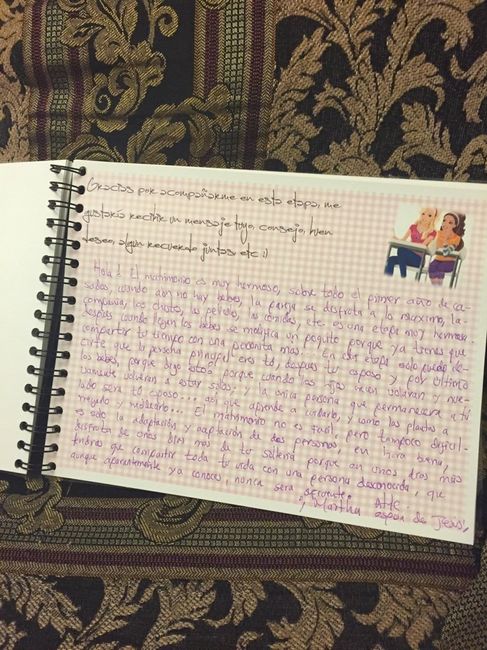 Gracias por acompañarme en esta etapa, me
gustaría recibir un mensaje tuyo, consejo, buen
deseo, algun recuerdo juntas etc :)
Hola! El matrimonio es muy hermoso, sobre todo el primer año de ca-
sados, cuando aun no hay bebes, la pareja se disfruta a lo maximo, la
compañia, las charlas, las peliculas, las comidas, etc. es una etapa muy hermosa
despues cuando llegan los bebes se modifica un poquito porque ya tienes que
compartir tu tiempo con una personita mas... En esta etapa solo puedo de-
cirte que la persona principal eres tú, despues tu esposo y por ultimo
los bebes, porque digo esto? porque cuando los hijos crecen volaran y nue-
vamente volveran a estar solos, y la unica persona que permanecera a tu
lado sera tú esposo... asi que aprende a cuidarlo, y como las plantas a
regarlo y ... El matrimonio no es facil, pero tampoco dificil
es solo la adaptación y aceptación de dos personas, en hora buena,
disfruta de unos dias mas de tu solteria porque en unos dias mas
tendras que compartir toda tu vida con una persona desconocida, que
aunque aparentemente ya conoces, nunca sera suficiente.
Atte.
Martha esposa de Jesus